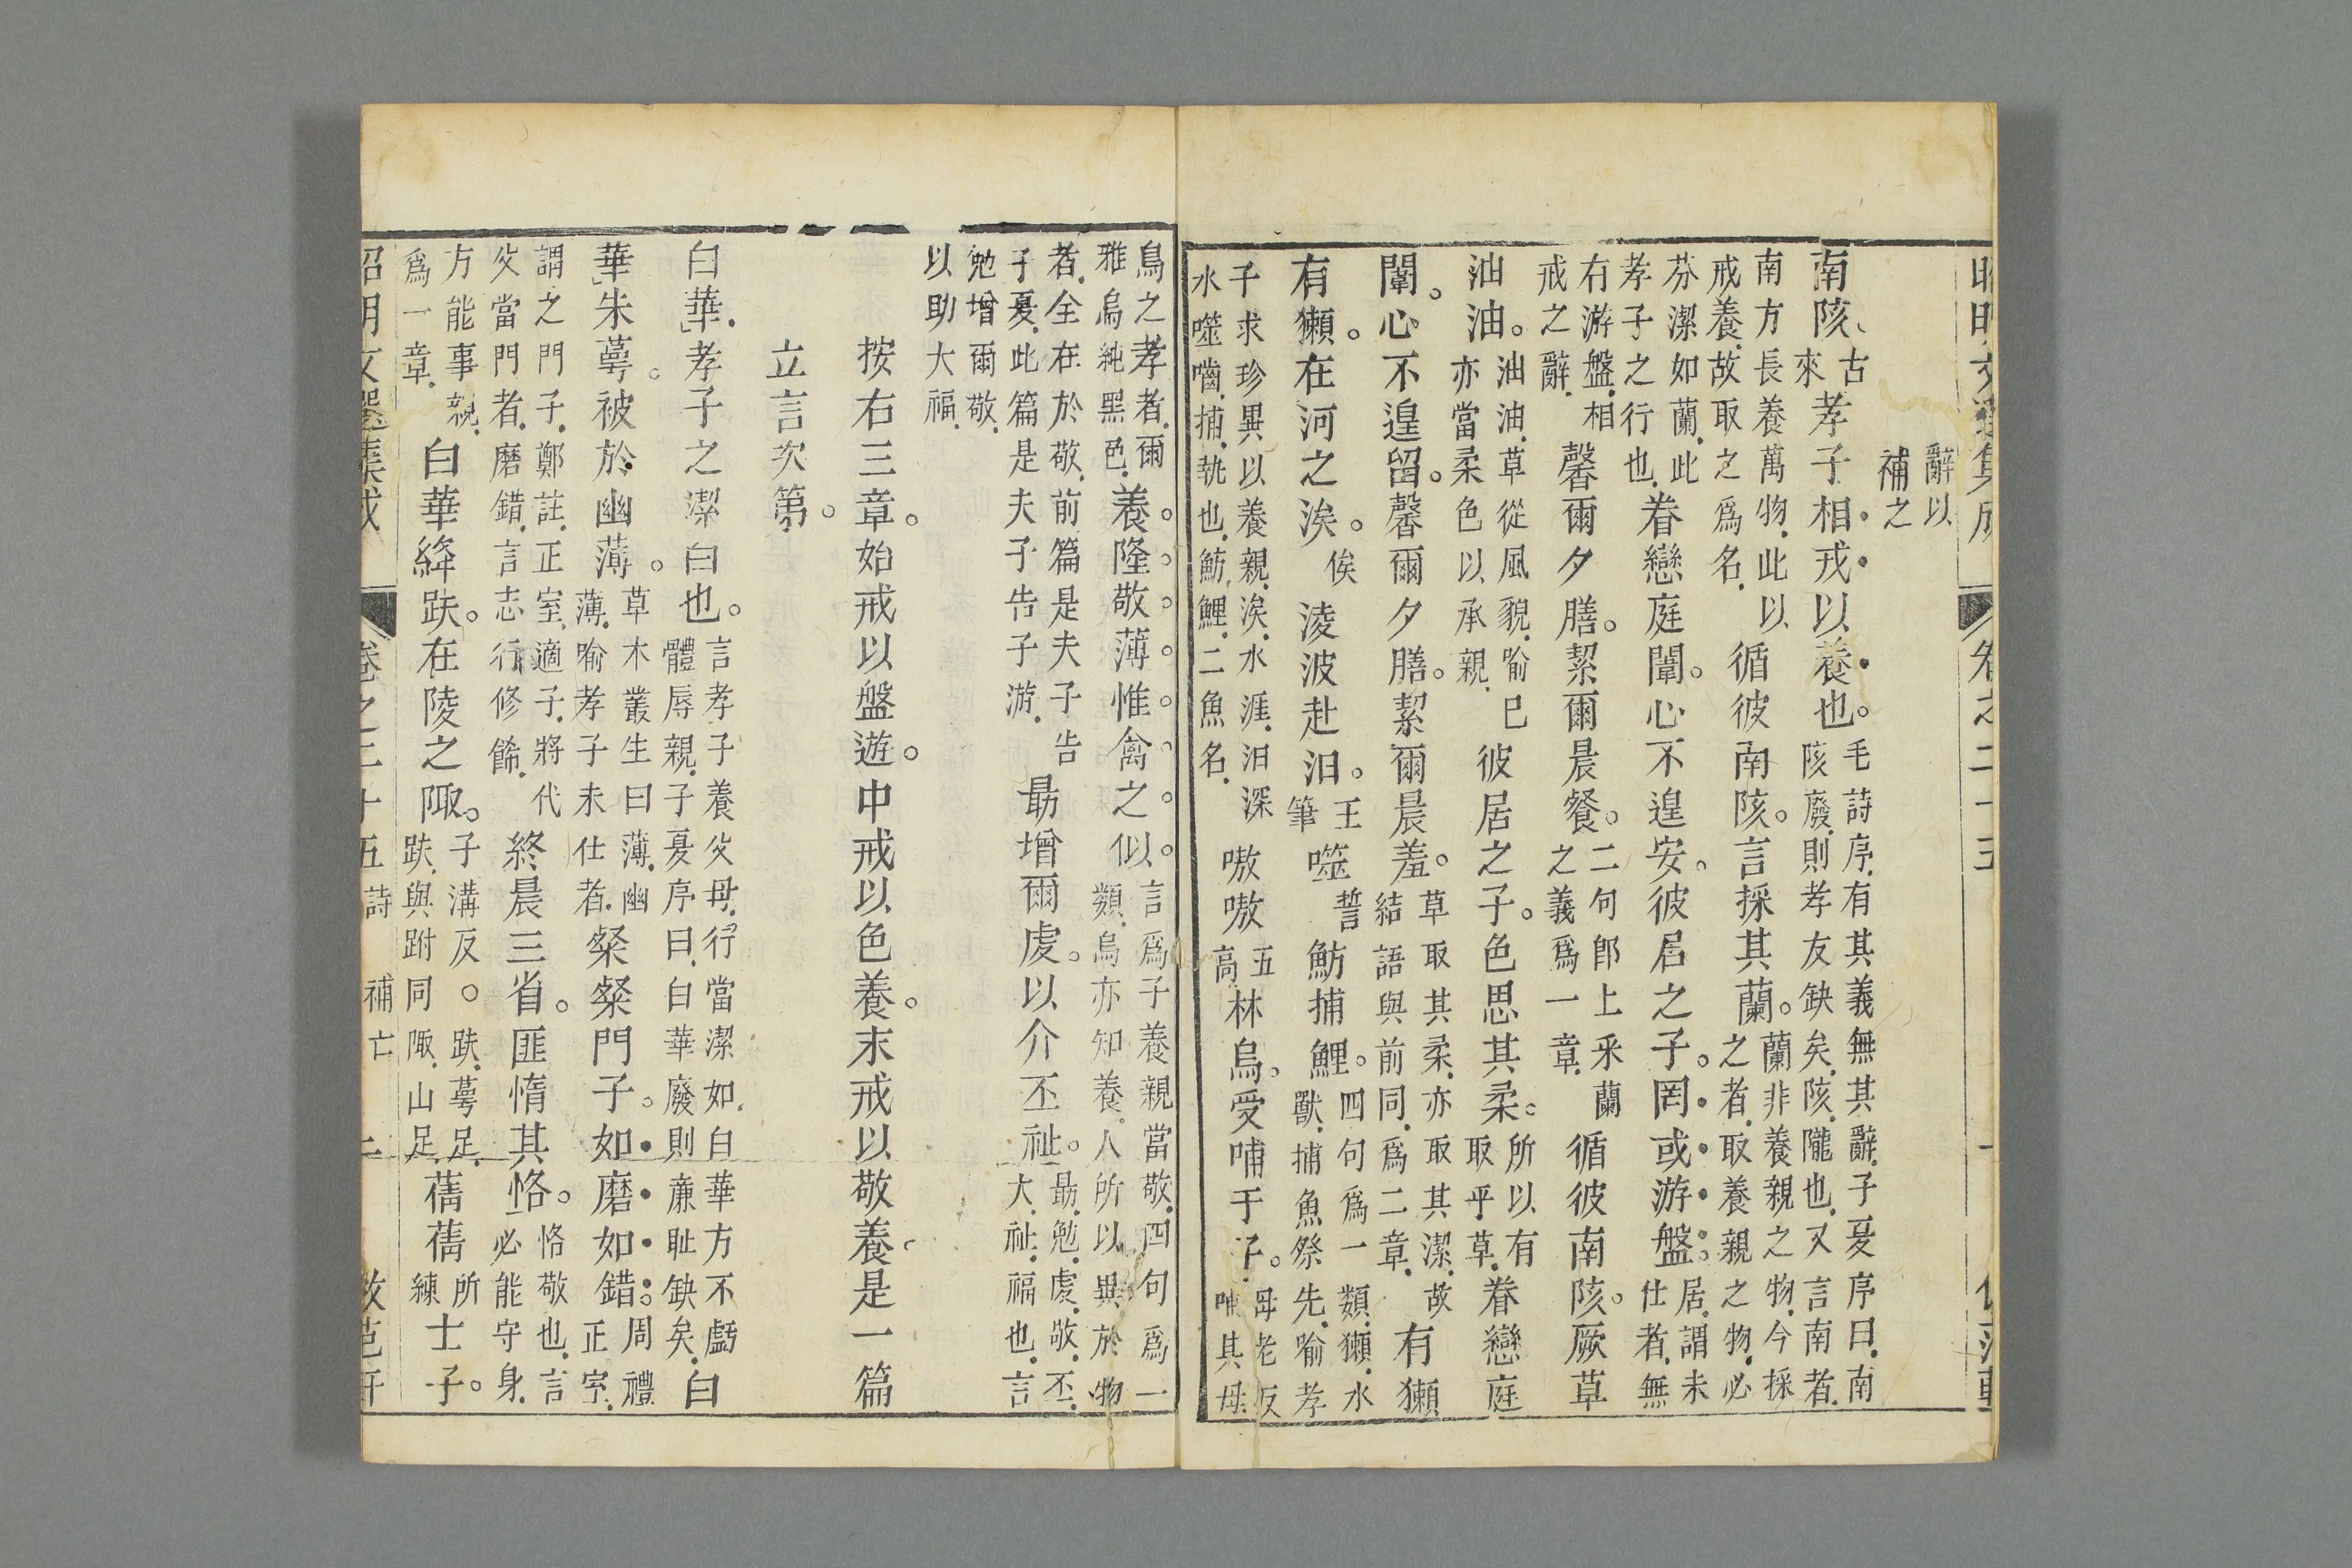 昭明文選集成 卷之二十五
辭以
補之
南陔古來孝子相戒以養也毛詩序有其義無其辭子夏序曰南
陔廢則孝友缺矣陔隴也又言南者
南方長養萬物此以
戒養故取之為名循彼南陔言採其蘭蘭非養親之物今採
之者取養親之物必
芬潔如蘭此
孝子之行也眷戀庭闈心不遑安彼居之子罔或游盤居謂未
仕者無
右游盤相
戒之辭馨爾夕膳絜爾晨餐二句即上采蘭
之義為一章循彼南陔厥草
油油油油草從風貌喻已
亦當柔色以承親彼居之子色思其柔所以有
取乎草眷戀庭
闈心不遑留馨爾夕膳絜爾晨羞草取其柔亦取其潔故
結語與前同為二章有獺
有獺在河之涘俟淩波赴汨王筆噬誓魴捕鯉四句為一類獺水
獸捕魚祭先喻孝
子求珍異以養親涘水涯汨深
水噬嚙捕執也魴鯉二魚名嗷嗷五高林烏受哺于子母老反
哺其母
鳥之孝者爾
雅烏純黑色養隆敬薄惟禽之似言為子養親當敬四句為一
類烏亦知養人所以異於物
者全在於敬前篇是夫子告
子夏此篇是夫子告子游勗增爾虔以介丕祉勗勉虔敬丕
大祉福也言
勉增爾敬
以助大福
按右三章始戒以盤遊中戒以色養末戒以敬養是一篇
立言次第
白華孝子之潔白也言孝子養父母行當潔如白華方不虧
體辱親子夏序曰白華廢則廉恥缺矣白
華朱萼被於幽薄草木叢生曰薄幽
薄喻孝子未仕者粲粲門子如磨如錯周禮
正室
謂之門子鄭註正室適子將代
父當門者磨錯言志行修飾終晨三省匪惰其恪恪敬也言
必能守身
方能事親
為一章白華絳趺在陵之陬子溝反○趺萼足
趺與跗同陬山足蒨蒨所練士子
昭明文選集成 卷之二十五 詩 補亡